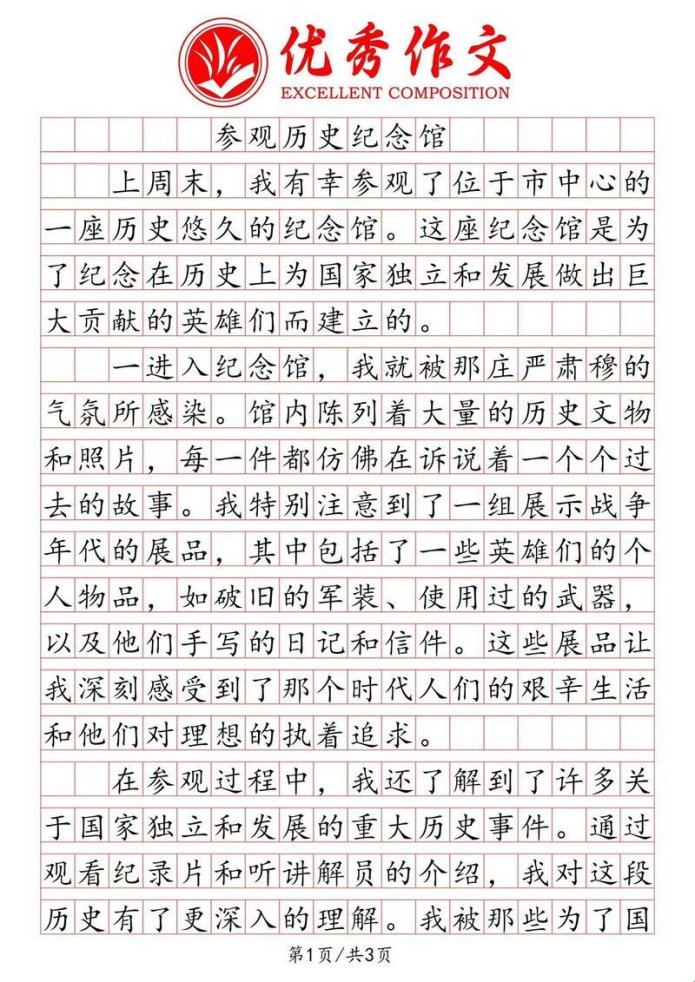 优秀作文
EXCELLENT COMPOSITION
参观历史纪念馆
上周末，我有幸参观了位于市中心的
一座历史悠久的纪念馆。这座纪念馆是为
了纪念在历史上为国家独立和发展做出巨
大贡献的英雄们而建立的。
一进入纪念馆，我就被那庄严肃穆的
气氛所感染。馆内陈列着大量的历史文物
和照片，每一件都仿佛在诉说着一个个过
去的故事。我特别注意到了一组展示战争
年代的展品，其中包括了一些英雄们的个
人物品，如破旧的军装、使用过的武器，
以及他们手写的日记和信件。这些展品让
我深刻感受到了那个时代人们的艰辛生活
和他们对理想的执着追求。
在参观过程中，我还了解到了许多关
于国家独立和发展的重大历史事件。通过
观看纪录片和听讲解员的介绍，我对这段
历史有了更深入的理解。我被那些为了国
第1页/共3页